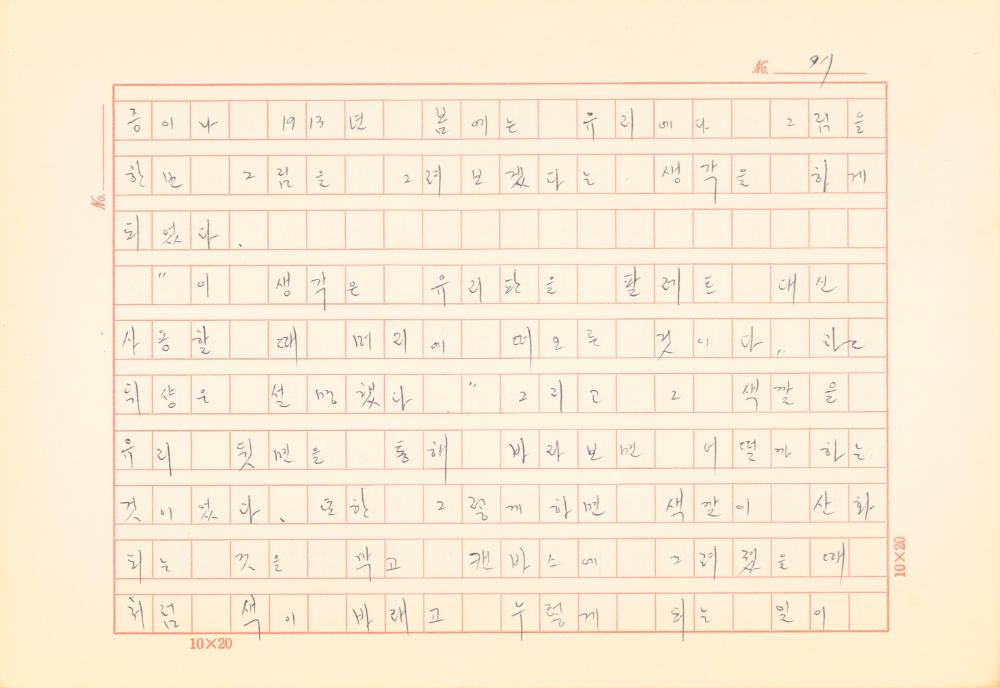 No. 91
중이나 1913년 봄에는 유리에다 그림을
한번 그림을 그려보겠다는 생각을 하게
되었다.
"이 생각은 유리판을 팔레트 대신
사용할 때 머리에 떠오른 것이다„ 라고
뒤샹은 설명했다. "그리고 그 색깔을
유리 뒷면을 통해 바라보면 어떨까 하는
것이었다. 또한 그렇게하면 색깔이 산화
되는 것을 막고 캔바스에 그려졌을 때
처럼 색이 바래고 누렇게 되는 일이
No.
10×20
10×20